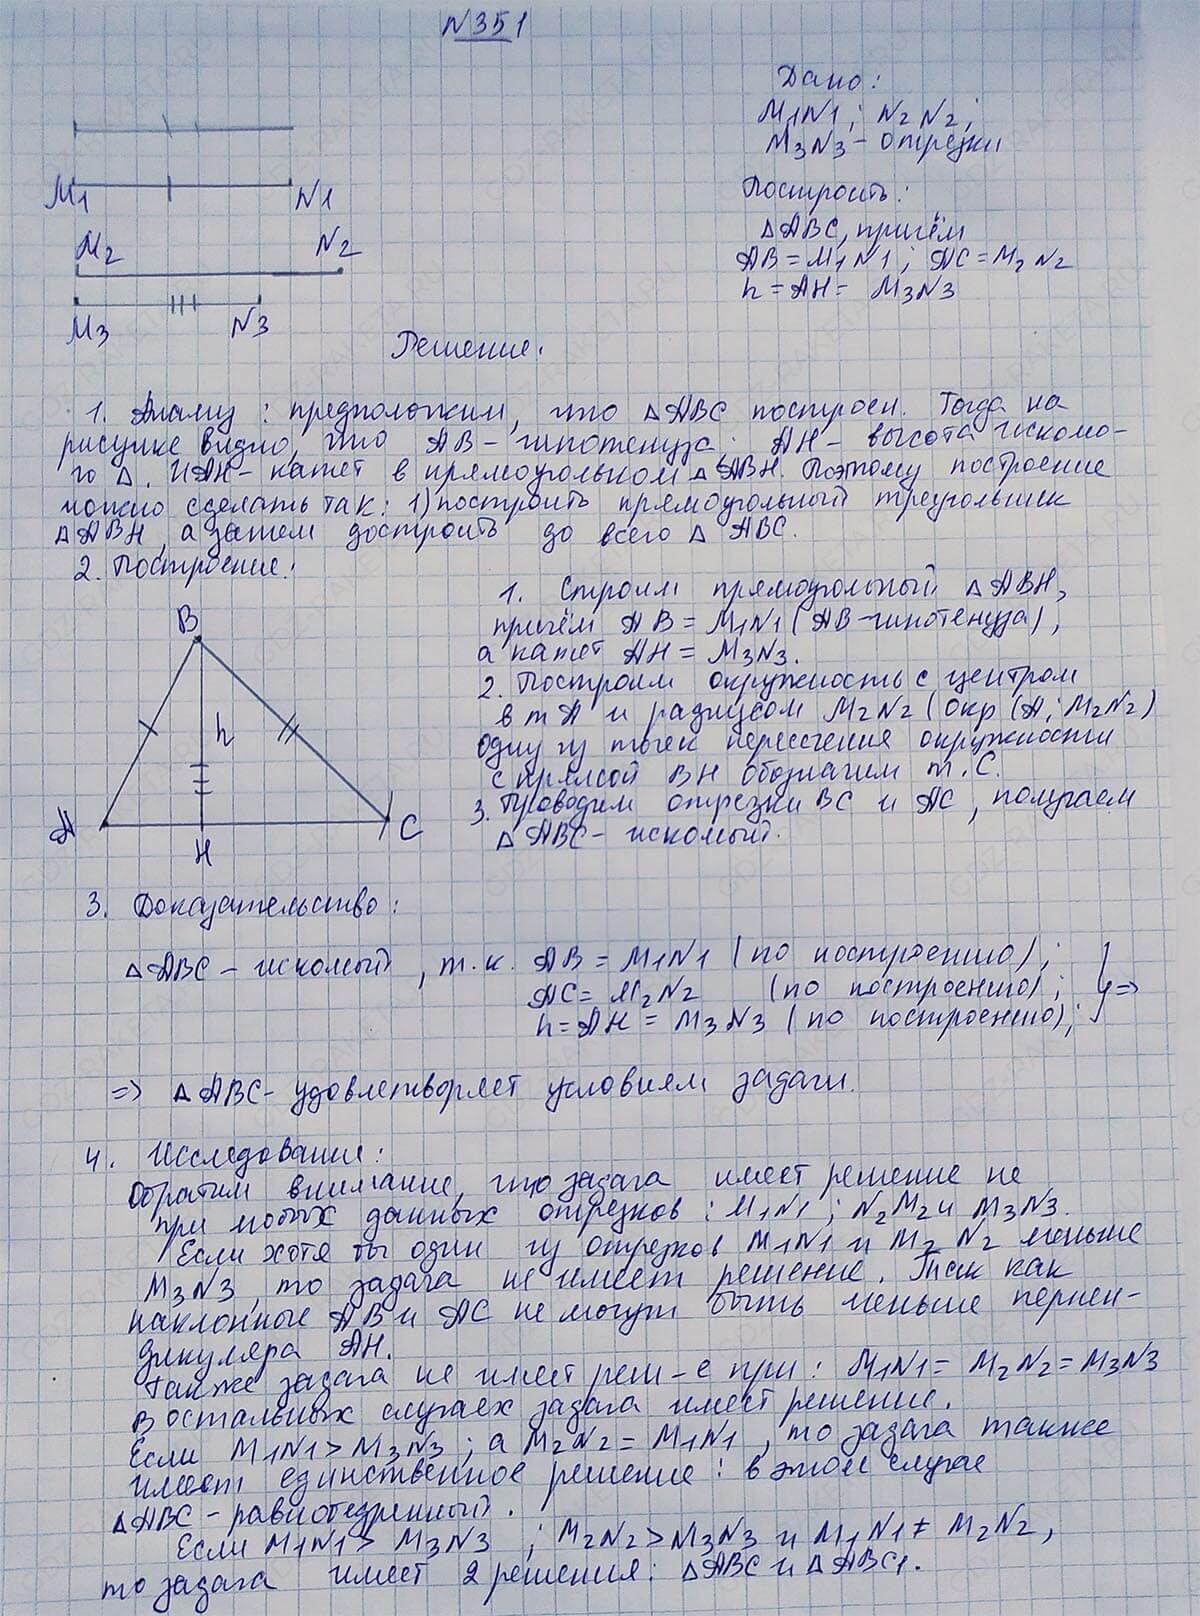 N351
Дано:
M1N1; N2N2;
M3N3 - отрезки
M1 N1
Построить:
M2 N2
△ABC, причём
AB = M1N1; AC = M2N2
h = AH = M3N3
M3 N3
Решение.
1. Анализ: предположим, что △ABC построен. Тогда на
рисунке видно, что AB - гипотенуза; AH - высота искомо-
го △. И AH - катет в прямоугольном △ABH. Поэтому построение
можно сделать так: 1) построить прямоугольный треугольник
△ABH, а затем достроить до всего △ABC.
2. Построение:
1. Строим прямоугольный △ABH,
причём AB = M1N1 (AB - гипотенуза),
а катет AH = M3N3.
2. Построим окружность с центром
в т A и радиусом M2N2 (окр (A; M2N2)
одну из точек пересечения окружности
с прямой BH обозначим т. C.
3. Проводим отрезки BC и AC, получаем
△ABC - искомый.
B
h
A H C
3. Доказательство:
△ABC - искомый, т.к. AB = M1N1 (по построению);
AC = M2N2 (по построению); } =>
h = AH = M3N3 (по построению);
=> △ABC - удовлетворяет условиям задачи.
4. Исследование:
Обратим внимание, что задача имеет решение не
при любых данных отрезков: M1N1; N2M2 и M3N3.
Если хотя бы один из отрезков M1N1 и M2N2 меньше
M3N3, то задача не имеет решение. Так как
наклонные AB и AC не могут быть меньше перпен-
дикуляра AH.
Также задача не имеет реш-е при: M1N1 = M2N2 = M3N3
В остальных случаех задача имеет решение.
Если M1N1 > M3N3; а M2N2 = M1N1, то задача также
имеет единственное решение: в этом случае
△ABC - равнобедренный.
Если M1N1 > M3N3; M2N2 > M3N3 и M1N1 ≠ M2N2,
то задача имеет 2 решения: △ABC и △ABC1.